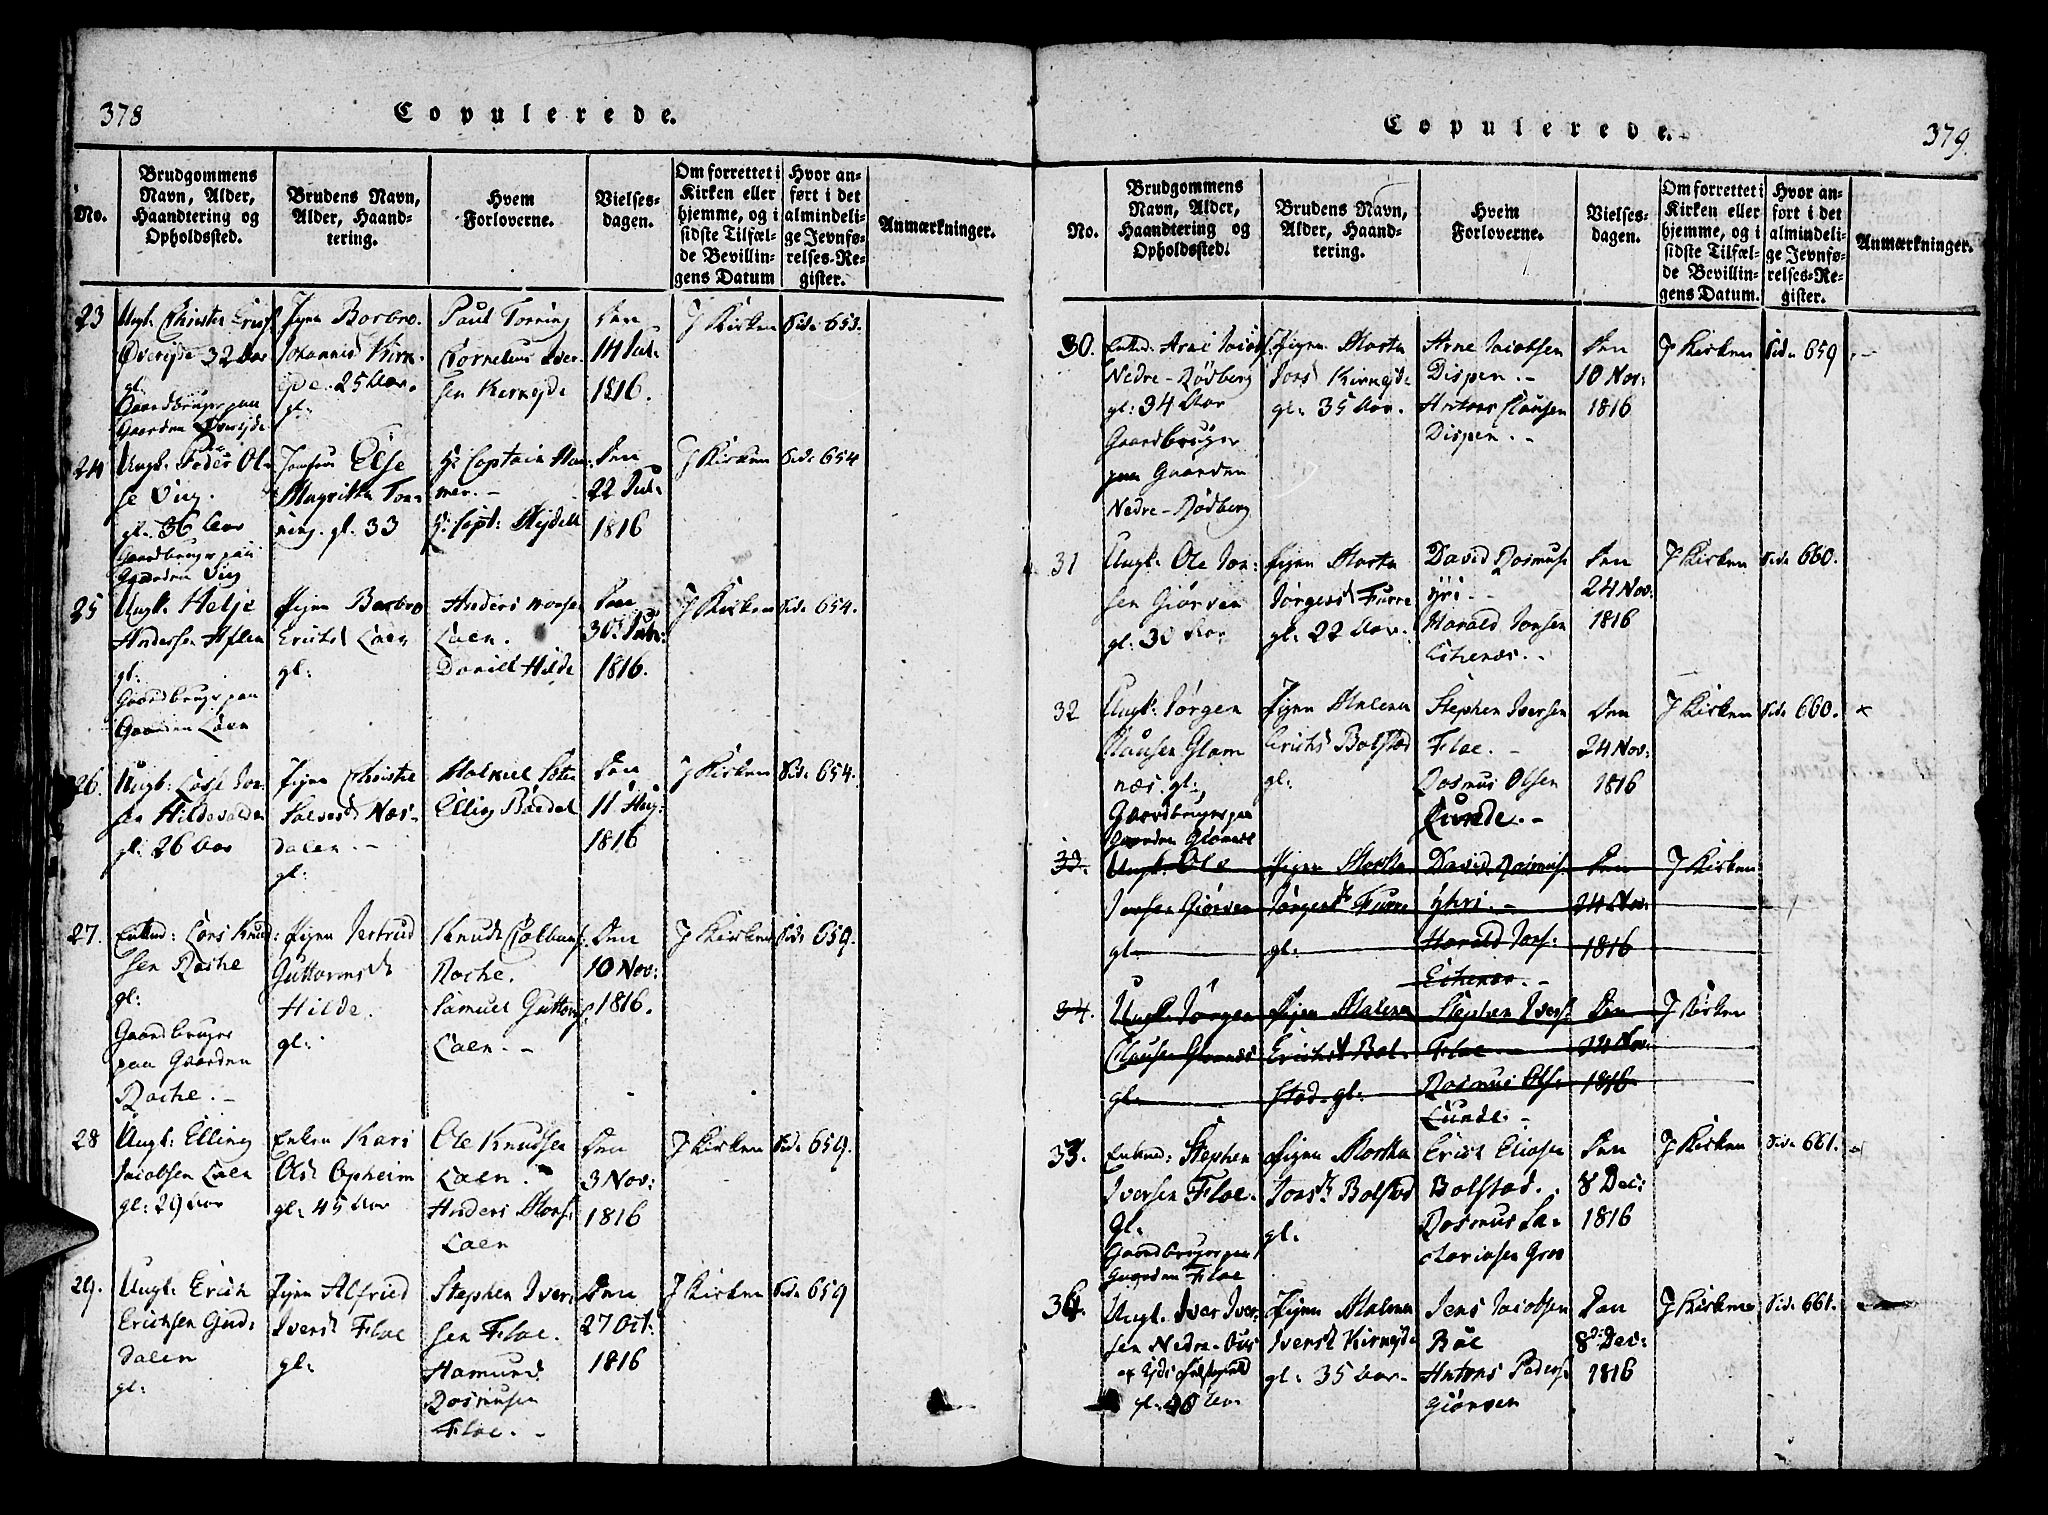 378
Copulerede.
No.
Brudgommens Navn, Alder, Haandtering og Opholdssted.
Brudens Navn, Alder, Haandtering.
Hvem Forloverne.
Vielsesdagen.
Om forrettet i Kirken eller hjemme, og i sidste Tilfælde Bevillingens Datum
Hvor anført i det almindelige Jevnførelses-Register.
Anmærkninger.
23
Ungk: Christen
Øvreijde 32 Aar
gl:
Gaardbruger paa
Gaarden Øvreijde
Pigen Barbro
Johannisd Kirk-
ejde. 25 Aar.
gl:
Paul Tonning
Cornelius Iver-
sen Kirkejde
Den
14 Jul:
1816.
J Kirken
Side 653.
24
Ungk: Peder Ol-
se Vug.
gl. 36 Aar
Gaardbruger paa
Gaarden Vug
Jomfrue Else
Magritha Ton-
ning. gl. 33
Hr Captain
Hr: Capt:
Den
22 Jul:
1816
J Kirken
Side 654
25
Ungk: Helje
Andersen Aflen
gl:
Gaardbruger paa
Gaarden Loen
Pigen Barbro
Erichsd Loen
gl:
Anders
Loen.
Daniel Hilde
Den
30
1816.
J Kirken
Side 654.
26.
Ungk: Lasse Jon-
sen Hildevolden
gl: 26 Aar
Pigen Christie
Nes-
dalen. -
gl:
Elling Bödal
Den
11 Aug:
1816
J Kirken
Side 654.
27.
Enkem: Lars Knud-
sen Rache
gl:
Gaardbruger
paa Gaarden
Rache. -
Pigen Jertrud
Guttormsd
Hilde.
gl:
Knud Colbens:
Rache.
Samuel Guttorms:
Loen. -
Den
10 Nov:
1816.
J Kirken
Side 659.
28
Ungk: Elling
Jacobsen Loen
gl: 29 Aar
Enken Kari
Olsd Opheim
gl: 45 Aar
Ole Knudsen
Loen. -
Anders Mons:
Loen
Den
3 Nov:
1816
J Kirken
Side 659.
29.
Ungk: Erich
Erichsen Gud-
dalen
gl:
Pigen Alfried
Iversd Floe
gl:
Stephen Iver-
sen Floe.
Hamund
Rasmusen
Floe. -
Den
27 Oct:
1816
J Kirken
Side 659
Copulerede.
379.
No.
Brudgommens Navn, Alder, Haandtering og Opholdssted.
Brudens Navn, Alder, Haandtering.
Hvem Forloverne.
Vielsesdagen.
Om forrettet i Kirken eller hjemme, og i sidste Tilfælde Bevillingens Datum.
Hvor anført i det almindelige Jevnførelses-Register.
Anmærkninger.
30.
Enkem: Arne Jacobs:
Nedre-Rödberg
gl: 34 Aar
Gaardbruger
paa Gaarden
Nedre-Rödberg
Pigen Martha
Jonsd Kirkejde
gl: 35 Aar.
Arne Jacobsen
Dispen. -
Antons Clausen
Dispen. -
Den
10 Nov:
1816
J Kirken
Side 659
31
Ungk: Ole Jon-
sen Giörven
gl: 30 Aar
Pigen Martha
Jörgensd Furre
gl: 22 Aar.
David Rasmus:
Yri. -
Harald Jonsen
Eikenæs. -
Den
24 Nov:
1816
J Kirken
Side 660.
32
Ungk: Jörgen
Clausen Glom
næs. gl:
Gaardbruger paa
Gaarden Glomnæs
Pigen Malena
Erichsd Bolstad
gl:
Stephen Iversen
Floe. -
Rasmus Olsen
Lunde. -
Den
24 Nov:
1816
J Kirken
Side 660.
33.
Ungk: Ole
Jonsen Giörven
gl:
Pigen Martha
Jörgensd Furre
gl:
David Rasmus:
Yhri. -
Harald Jons:
Eikenæs. -
Den
24 Nov:
1816
J Kirken
34.
Ungk: Jörgen
Clausen Glomnæs
gl:
Pigen Malena
Erichsd Bol-
stad. gl:
Stephen Ivers:
Floe. -
Rasmus Ols:
Lunde. -
Den
24 Nov:
1816
J Kirken
33.
Enkem: Stephen
Iversen Floe.
gl:
Gaardbruger paa
Gaarden Floe
Pigen Martha
Jonsd Bolstad
gl.
Erich Eliasen
Bolstad.
Rasmus Sa-
chariasen
Den
8 Dec:
1816
J Kirken
Side 661.
34.
Ungk. Iver Iver-
sen Nedre-
gl. 40 Aar
Pigen Malena
Iversd Kirkejde
gl: 35 Aar.
Jens Jacobsen
Böe
Antons Peders:
Giörven
Den
8d: Dec:
1816
J Kirken
Side 661.